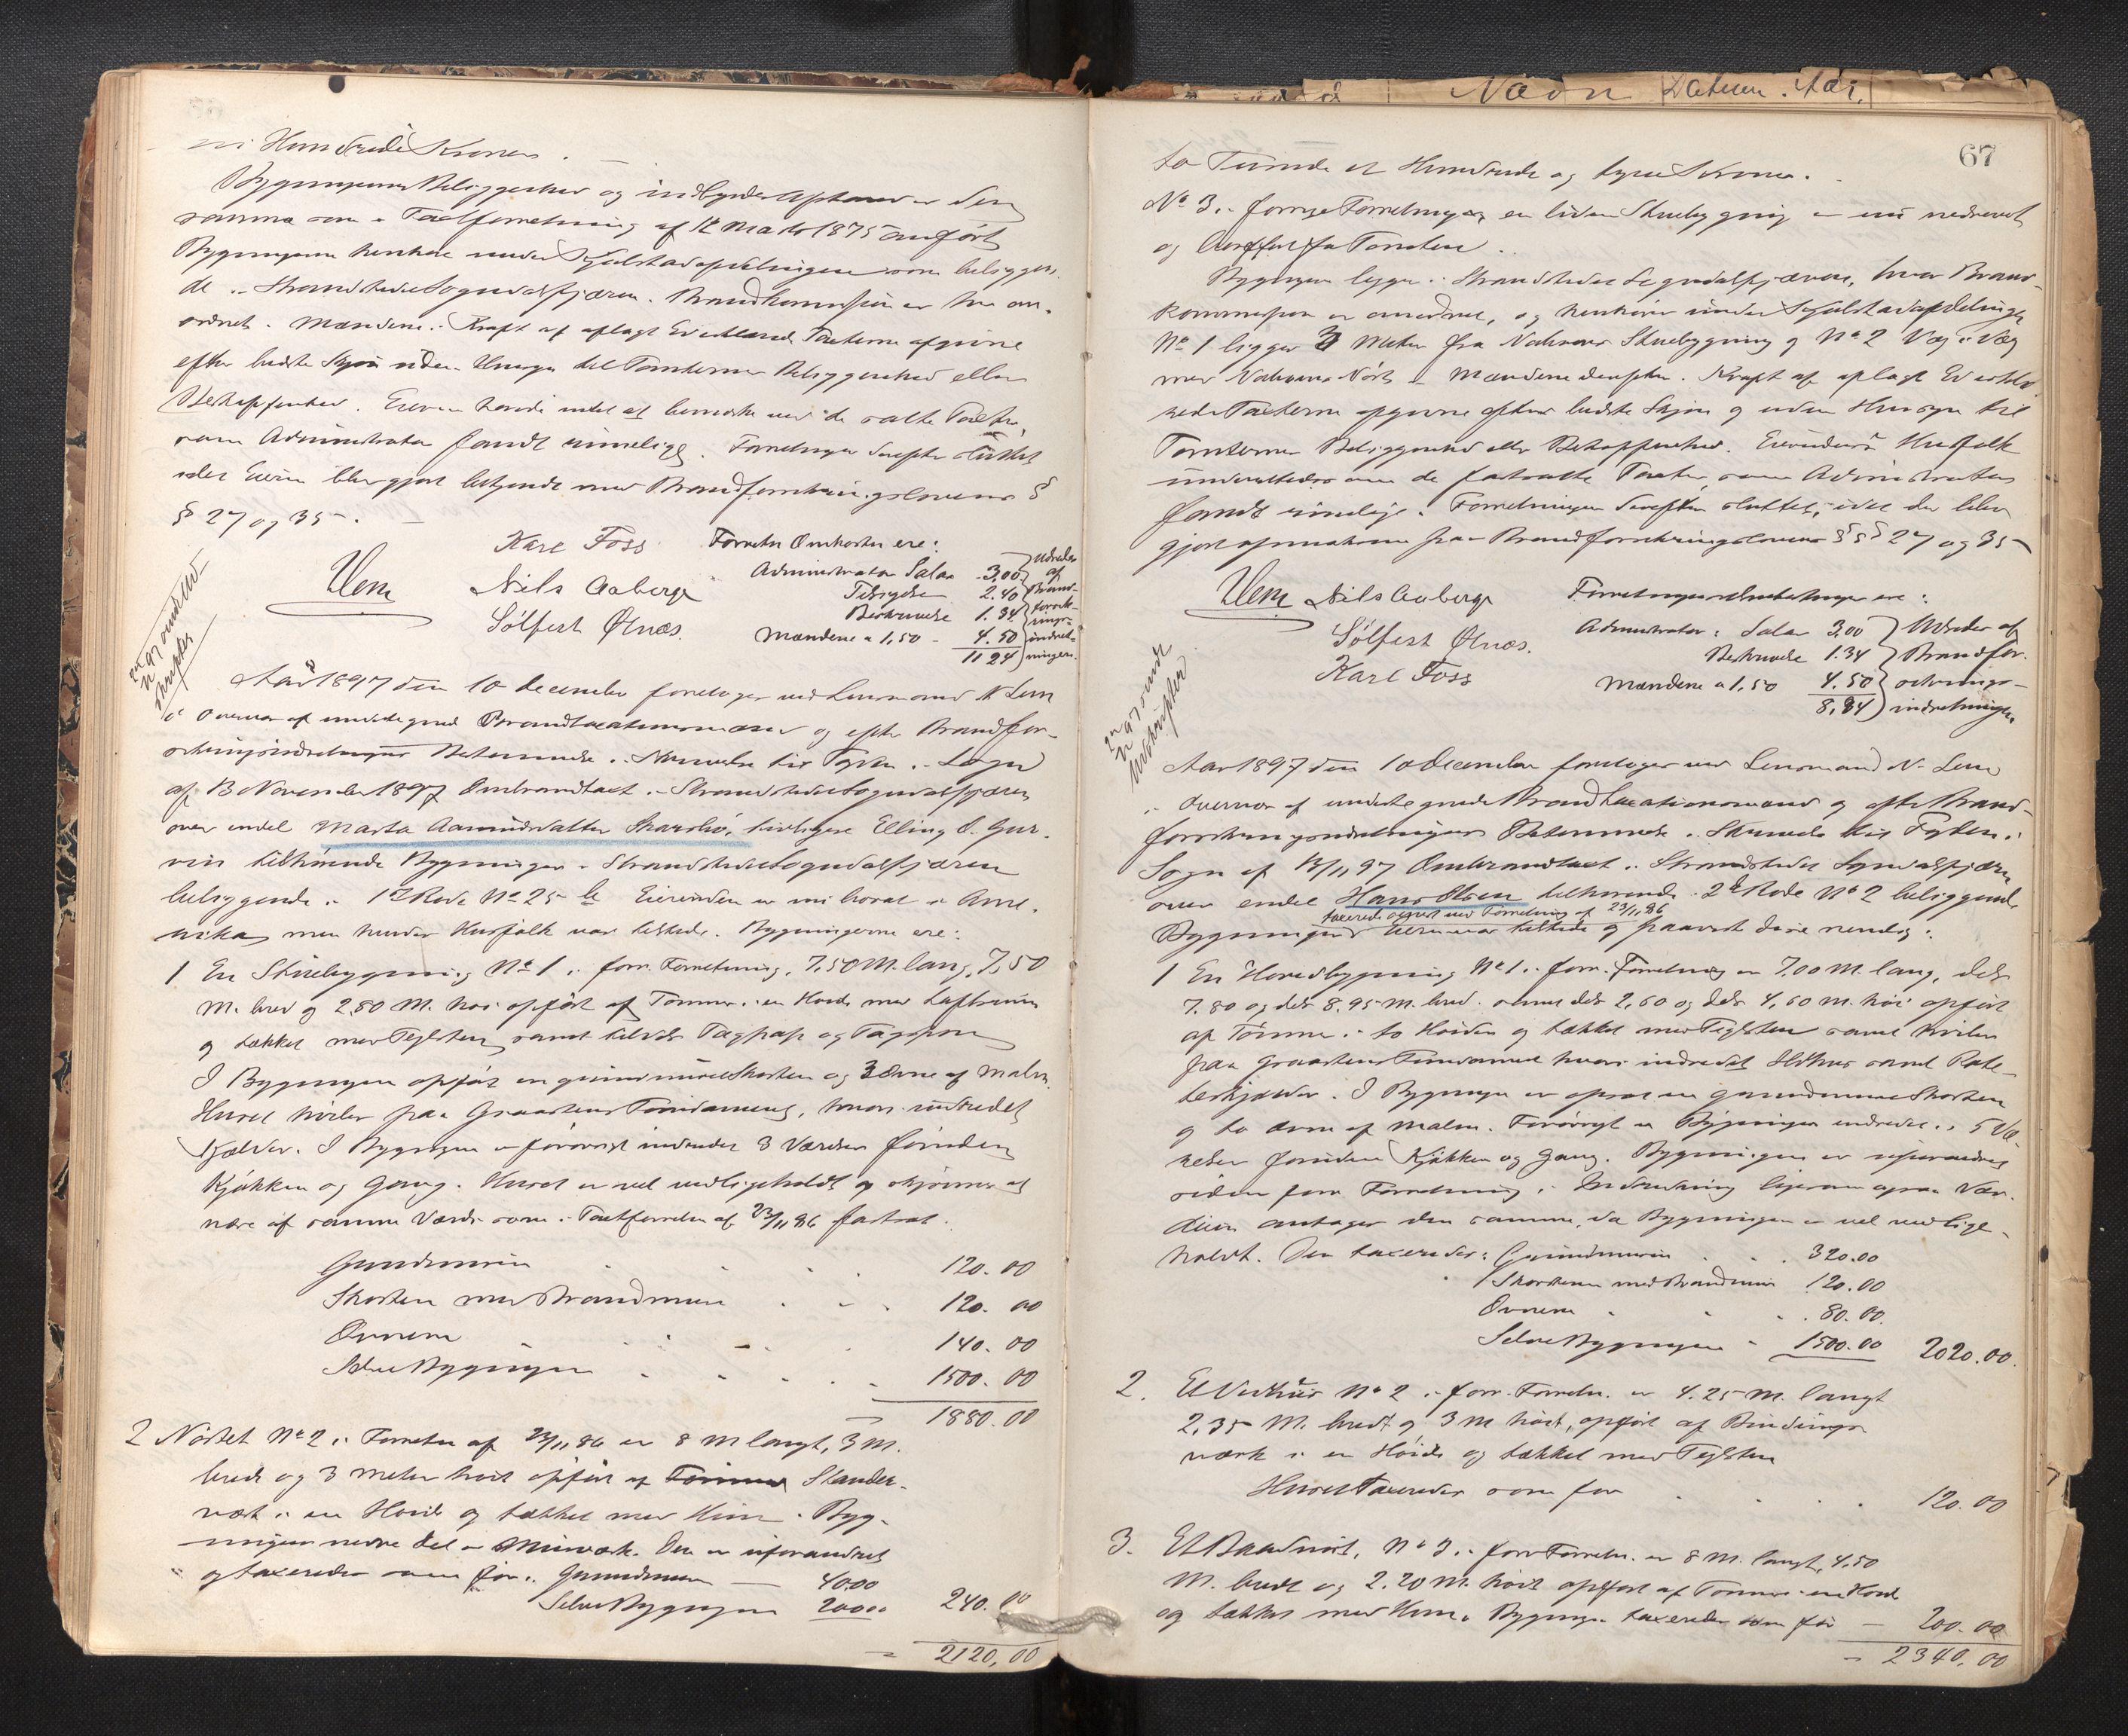 ni Hundrede Kroner. —
Bygningernes Beliggenhed og indbyrdes Afstand er den
samme som i Taxtforretning af 12 Marts 1875 anført
Bygningerne henhører under Kjøbstadafdelingen som beliggen-
de i Strandstedet Sogndalsfjæren. Brandkommission er her an-
ordnet. Mændene i Kraft af aflagt Ed erklærede Taxterne afgivne
efter bedste Skjøn uden Hensyn til Tomternes Beliggenhed eller
Beskaffenhed. Eieren havde intet at bemærke ved de satte Taxter,
som Administrator fandt rimelige. Forretningen derefter sluttet
idet Eieren blev gjort bekjendt med Brandforsikringslovens §
§ 27 og 35. —
Karl Foss
Lem Nils Aaberge
Sølfest Ølnæs.
Forretn. Omkostn. ere:
Administrator Salær 3.00
Tilsigelse 2.40
Beskrivelse 1.34
Mændene a 1,50 - 4.50
11 24
Udredes
af
Brand-
forsik-
rings-
indret-
ningen.
22/12 97 omsendt
Udskrifter
Aar 1897 den 10 december foretoges ved Lensmand N Lem
i Overvær af undertegnede Brandtaxationsmænd og efter Brandfor-
sikringsindretningens Bestemmelse i Skrivelse til Fogden i Sogn
af 13 November 1897 Ombrandtaxt i Strandstedet Sogndalsfjæren
over endel Marta Aamundsdatter Skarsbø, tidligere Elling O. Gur-
vin tilhørende Bygninger i Strandstedet Sogndalsfjæren
beliggende i 1st Rode No 25 b Eierinden er nu bosat i Ame-
rika men hendes Husfolk var tilstede. Bygningerne ere:
1 En Stuebygning No 1 i forr. Forretning, 7,50 M. lang, 7,50
M. bred og 2,80 M. høi opført af Tømmer i en Høide med Loftsrum
og tækket med Teglsten samt tildels Tagpap og Tagspon
I Bygningen opført en grundmuret Skorsten og 3 Ovne af Malm.
Huset hviler paa Graastens Fundament, hvori indredet
Kjælder. I Bygningen er forøvrigt indredet 3 Værelser foruden
Kjøkken og Gang. Huset er vel vedligeholdt og skjønnes at
være af samme Værdi som i Taxtforretn. af 23/11 86 fastsat.
Grundmuren . . . . 120. 00
Skorsten med Brandmur . . . 120. 00
Ovnene . . . . 140. 00
Selve Bygningen . . . . 1500. 00
— 1880. 00
2 Nøstet No 2 i Forretn. af 23/11 86 er 8 M langt, 3 M.
bredt og 3 Meter høit opført af Tømmer Stander-
værk i en Høide og tækket med Heller. Byg-
ningens nedre Del er Murværk. Den er uforandret
og taxeredes som før: Grundmuren — 40.00
Selve Bygningen 200.00 240. 00
— 2120,00
Nævn Datum. Aar.
67
to Tusinde et Hundrede og tyve Kroner. .
No 3 i forrige Forretning en liden Stuebygning er nu nedrevet
og bortført fra Tomten.
Bygningen ligger i Strandstedet Sogndalsfjæren, hvor Brand-
kommission er anordnet, og henhører under Kjøbstadafdelingen
No 1 ligger 3 Meter fra Naboens Stuebygning og No 2 Væg i Væg
med Naboens Nøst. Mændene derefter i Kraft af aflagt Ed erklæ-
rede Taxterne afgivne efter bedste Skjøn og uden Hensyn til
Tomternes Beliggenhed eller Beskaffenhed. Eierindens Husfolk
underrettedes om de fastsatte Taxter, som Administrator
fandt rimelige. Forretningen derefter sluttet, idet der blev
gjort opmærksom paa Brandforsikringslovens §§§ 27 og 35
Lem Nils Aaberge
Sølfest Ølnæs.
Karl Foss
Forretningens Omkostninger ere:
Administrator: Salær 3.00
Beskrivelse 1.34
Mændene a 1,50 4.50
8,84
Udredes af
Brandfor-
sikrings-
indretningen
22/12 97 omsendt
Udskrifter
Aar 1897 den 10 december foretoges ved Lensmand N. Lem
i Overvær af undertegnede Brandtaxationsmænd og efter Brand-
forsikringsindretningens Bestemmelse i Skrivelse til Fogden i
Sogn af 13/11 97 Ombrandtaxt i Strandstedet Sogndalsfjæren
over endel Hans Olsen tilhørende i 2de Rode No 2 beliggende
taxerede senest ved Forretning af 23/11 86
Bygninger. Eieren var tilstede og paaviste disse nemlig:
1 En Hovedbygning No 1 i forr. Forretning er 7.00 M. lang, dels
7.80 og dels 8.95 M. bred samt dels 2,60 og dels 4,60 M. høi opført
af Tømmer i to Høider og tækket med Teglsten samt hviler
paa Graastens Fundament hvori indredet Ildhus samt Pote-
teskjælder. I Bygningen er opført en grundmuret Skorsten
og to Ovne af Malm. Forøvrigt er Bygningen indredet i 5 Væ-
relser foruden Kjøkken og Gang. Bygningen er uforandret
siden forr. Forretning i Indredning ligesom ogsaa Vær-
dien antages den samme, da Bygningen er vel vedlige-
holdt. Den taxeredes: Grundmuren . . 320.00
Skorstenen med Brandmur 120.00
Ovnene . . . 80.00.
Selve Bygningen - 1500.00 2020.00.
2. Et Vedhus No 2 i forr. Forretn. er 4.25 M. langt
2,35 M. bredt og 3 M høit, opført af Bindings-
værk i en Høide og tækket med Teglsten
Huset taxeredes som før . . . 120. 00
3. Et Baadnøst, No 3 i forr Forretn. er 8 M. langt, 4,50
M. bredt og 2.20 M. høit opført af Tømmer i en Høide
og tækket med Heller. Bygningen taxeredes som før — 200. 00
— 2340. 00